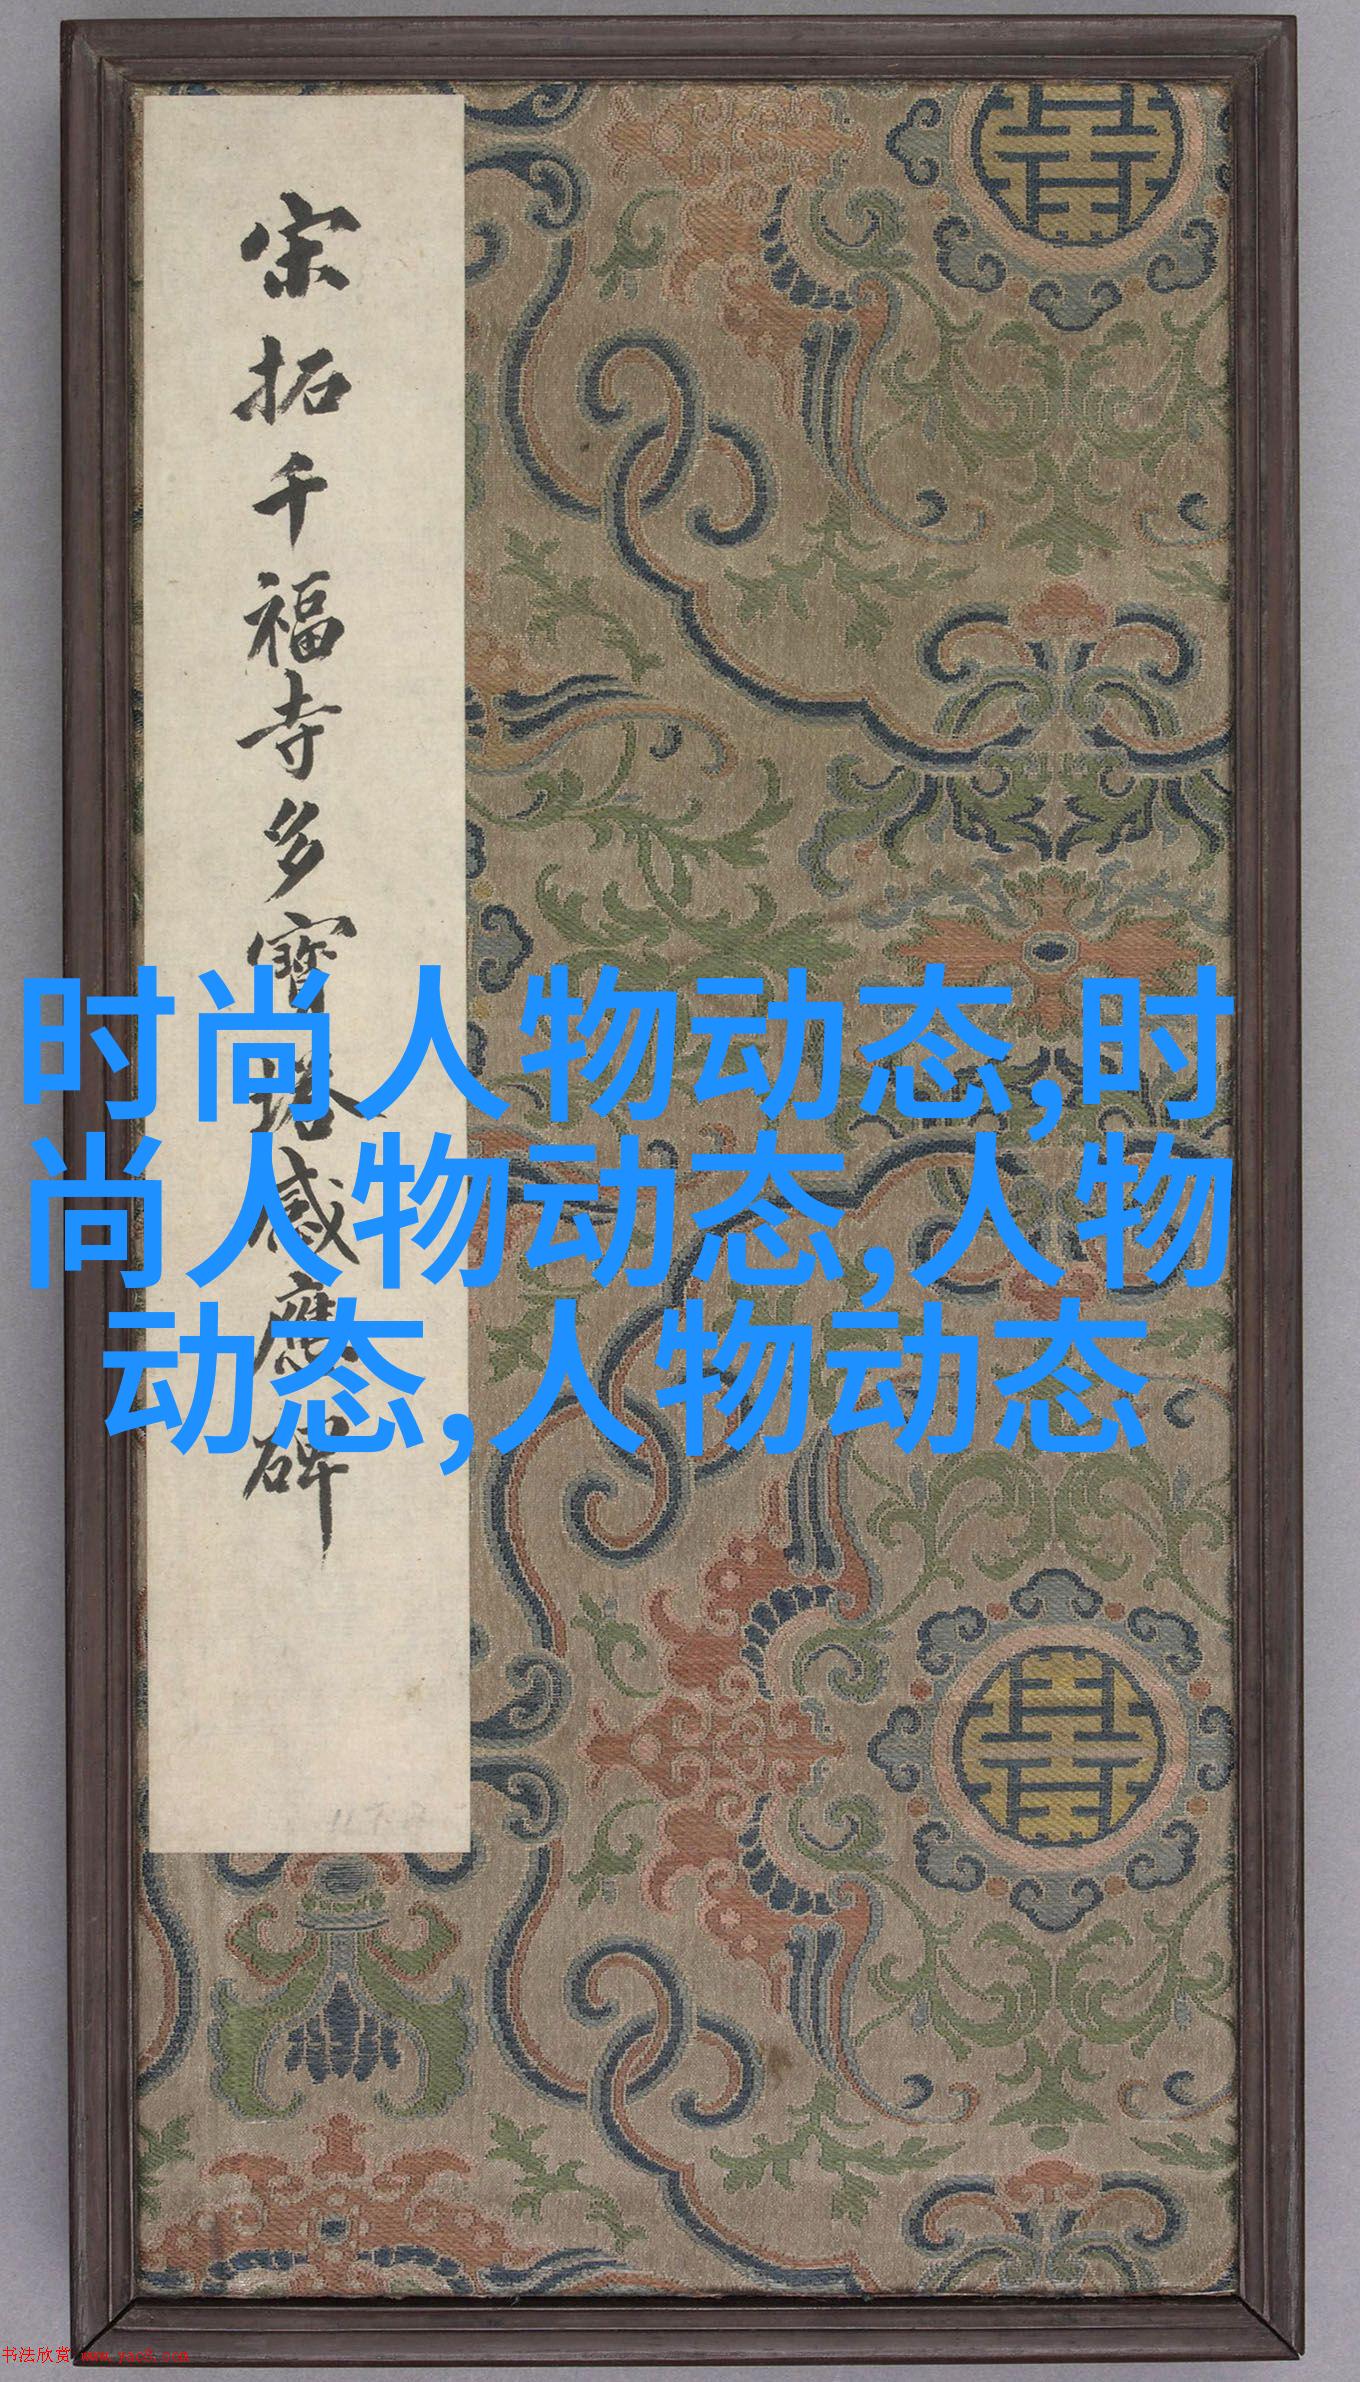 宋拓千福寺多寶塔感應碑
时尚人物动态,时
尚人物动态,人物
动态,人物动态
书法欣赏 www.yac8.com